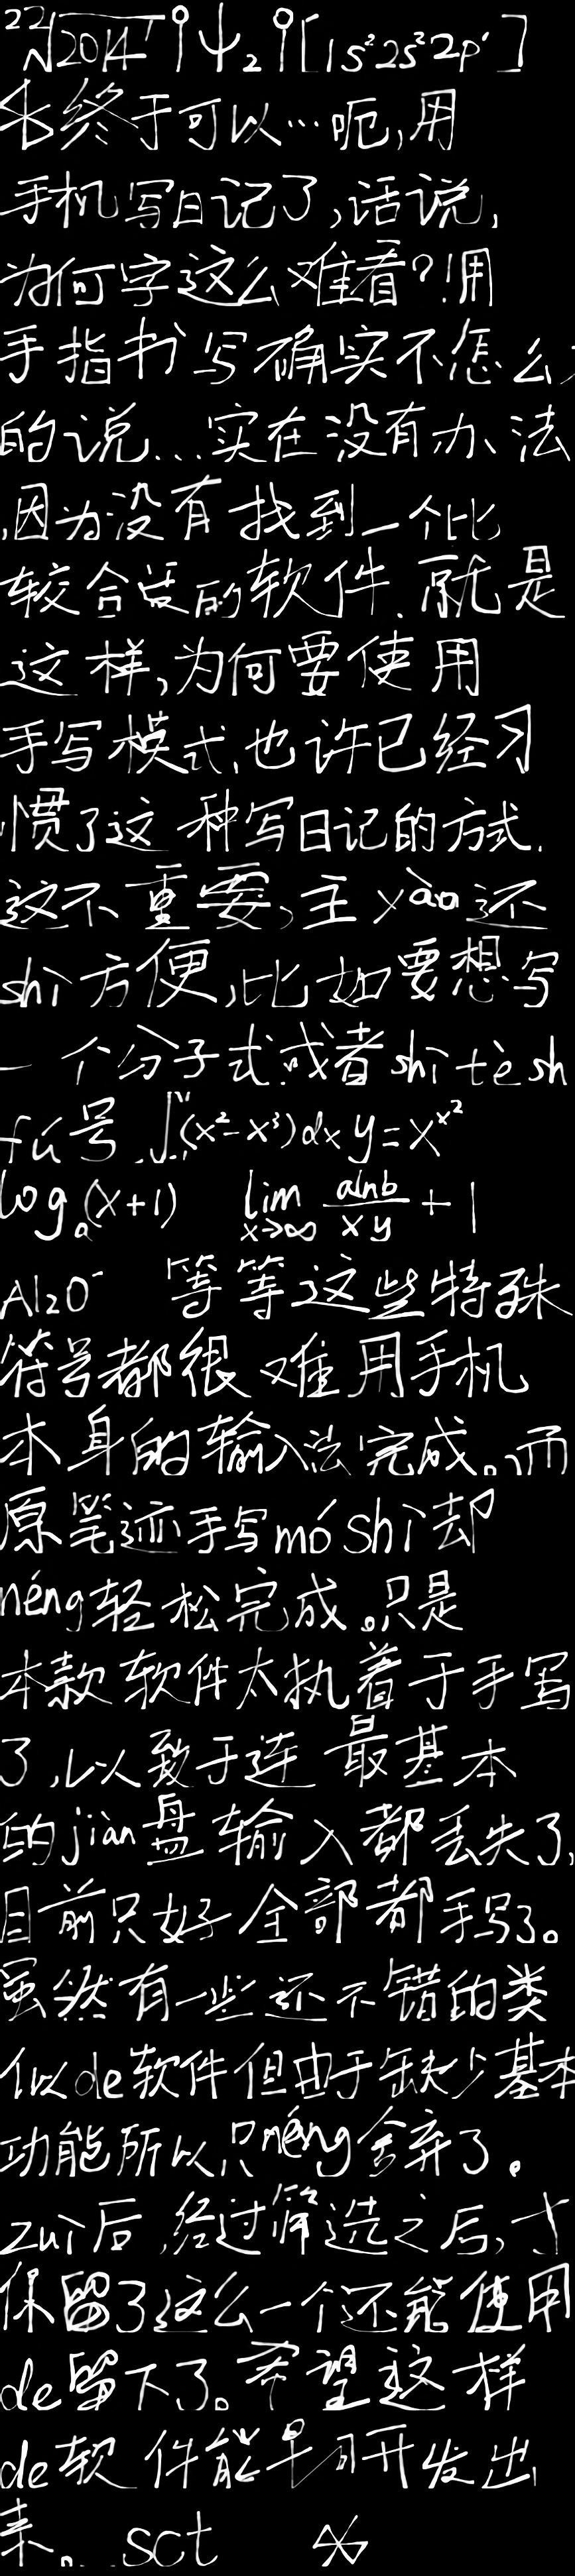 22√2014 Ψ2 [1s²2s²2p¹]
终于可以…呃,用
手机写日记了,话说,
为何字这么难看?!用
手指书写确实不怎么
的说...实在没有办法
,因为没有找到一个比
较合适的软件.就是
这样,为何要使用
手写模式,也许已经习
惯了这种写日记的方式.
这不重要,主yào还
shì方便,比如要想写
一个分子式或者shì tè sh
fú号 ∫(x²-x³)dx y=x^x²
logₐ(x+1) lim x→∞ alnb/xy +1
Al₂O⁻ 等等这些特殊
符号都很难用手机
本身的输入法完成。而
原笔迹手写móshì却
néng轻松完成。只是
本款软件太执着于手写
了,以致于连最基本
的jiàn盘输入都丢失了,
目前只好全部都手写了。
虽然有一些还不错的类
似de软件但由于缺少基本
功能所以只néng舍弃了。
zuì后,经过筛选之后,才
保留了这么一个还能使用
de留下了。希望这样
de软件能早日开发出
来。sct